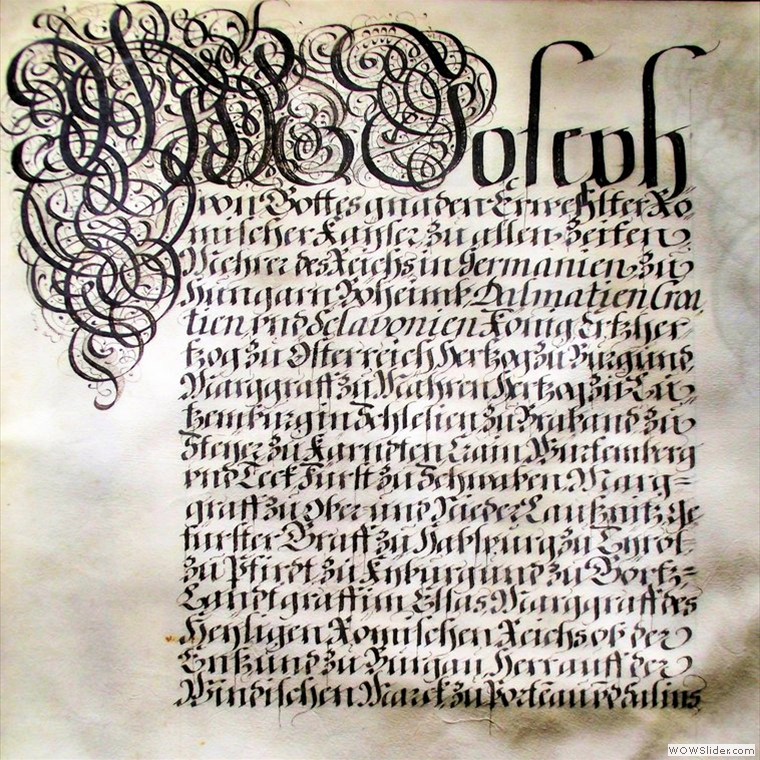 Wir Joseph
von Gottes gnaden Erwehlter Ro
mischer Kayser zu allen Zeiten
Mehrer des Reichs in Germanien zu
Hungarn Boheimb Dalmatien Croa
tien vnd Sclavonien König Ertzher-
tzog zu Osterreich Hertzog zu Burgund
Marggraff zu Mahren Hertzog zu Lu
tzemburg in Schlesien zu Braband zu
Steyer zu Karndten Crain Wurtemberg
vnd Teck Furst zu Schwaben Marg=
graff zu Ober und Nieder Laußnitz ge
furster Graff zu Habspurg zu Tyrol
zu Pfirdt zu Kyburg und zu Gortz=
Landtgraff im Elsas Marggraff des
Heyligen Romischen Reichs ob der
Enß und zu Burgau Herr auff der
Windischen Marck zu Portenau vnd Salins
WOWSlider.com